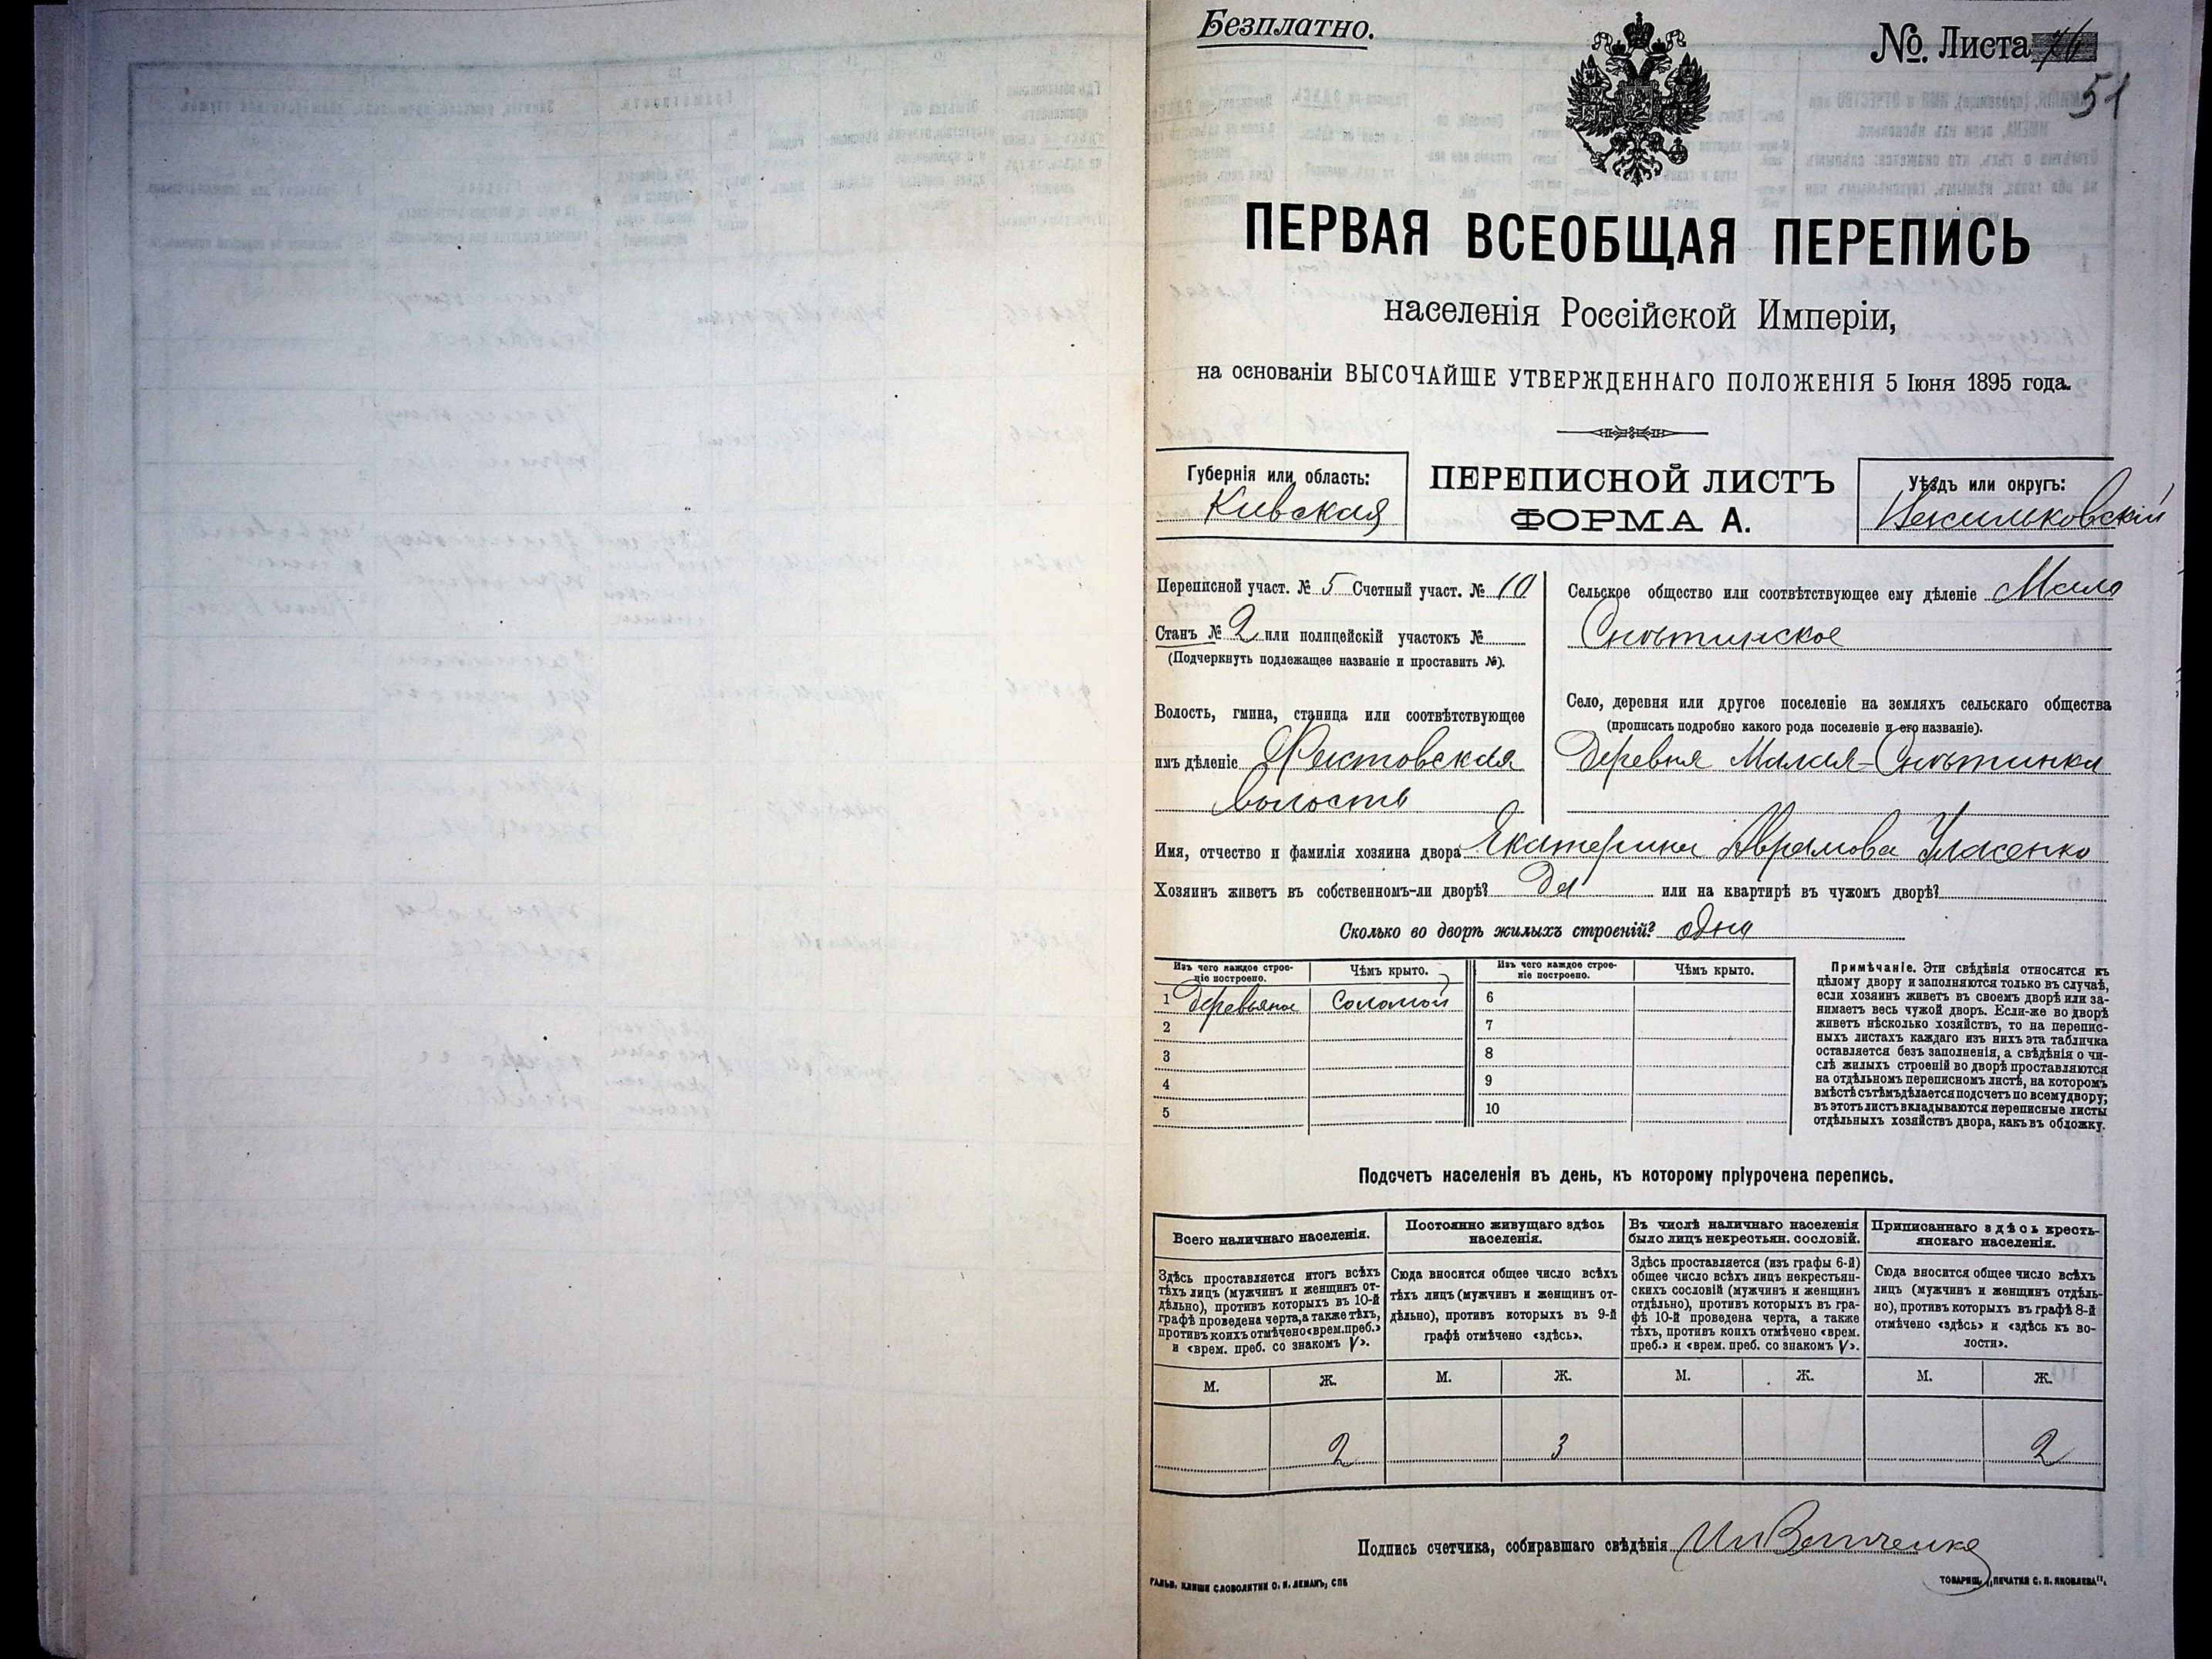 Безплатно.
№ Листа 76
51
ПЕРВАЯ ВСЕОБЩАЯ ПЕРЕПИСЬ
населенія Россійской Имперіи,
на основаніи ВЫСОЧАЙШЕ УТВЕРЖДЕННАГО ПОЛОЖЕНІЯ 5 Іюня 1895 года.
Губернія или область:
Кивская
ПЕРЕПИСНОЙ ЛИСТЪ
ФОРМА А.
Уѣздъ или округъ:
Васильковскій
Переписной участ. № 5 Счетный участ. № 10
Станъ № 2 или полицейскій участокъ №
(Подчеркнуть подлежащее названіе и проставить №).
Волость, гмина, станица или соотвѣтствующее
имъ дѣленіе Фастовская
волость
Сельское общество или соотвѣтствующее ему дѣленіе Мало
Снѣтинское
Село, деревня или другое поселеніе на земляхъ сельскаго общества
(прописать подробно какого рода поселеніе и его названіе).
Деревня Малая-Снѣтинка
Имя, отчество и фамилія хозяина двора Екатерина Аврамова Уласенко
Хозяинъ живетъ въ собственномъ-ли дворѣ? Да или на квартирѣ въ чужомъ дворѣ?
Сколько во дворѣ жилыхъ строеній? одна
Изъ чего каждое строе-
ніе построено.
Чѣмъ крыто.
Изъ чего каждое строе-
ніе построено.
Чѣмъ крыто.
1 Деревяна Соломой 6
2 7
3 8
4 9
5 10
Примѣчаніе. Эти свѣдѣнія относятся къ
цѣлому двору и заполняются только въ случаѣ,
если хозяинъ живетъ въ своемъ дворѣ или за-
нимаетъ весь чужой дворъ. Если-же во дворѣ
живетъ нѣсколько хозяйствъ, то на перепис-
ныхъ листахъ каждаго изъ нихъ эта табличка
оставляется безъ заполненія, а свѣдѣнія о чи-
слѣ жилыхъ строеній во дворѣ проставляются
на отдѣльномъ переписномъ листѣ, на которомъ
вмѣстѣ съ тѣмъ дѣлается подсчетъ по всему двору;
въ этотъ листъ вкладываются переписные листы
отдѣльныхъ хозяйствъ двора, какъ въ обложку.
Подсчетъ населенія въ день, къ которому пріурочена перепись.
Всего наличнаго населенія.
Здѣсь проставляется итогъ всѣхъ
тѣхъ лицъ (мужчинъ и женщинъ от-
дѣльно), противъ которыхъ въ 10-й
графѣ проведена черта, а также тѣхъ,
противъ коихъ отмѣчено «врем. преб.»
и «врем. преб. со знакомъ V».
Постоянно живущаго здѣсь
населенія.
Сюда вносится общее число всѣхъ
тѣхъ лицъ (мужчинъ и женщинъ от-
дѣльно), противъ которыхъ въ 9-й
графѣ отмѣчено «здѣсь».
Въ числѣ наличнаго населенія
было лицъ некрестьян. сословій.
Здѣсь проставляется (изъ графы 6-й)
общее число всѣхъ лицъ некрестьян-
скихъ сословій (мужчинъ и женщинъ
отдѣльно), противъ которыхъ въ гра-
фѣ 10-й проведена черта, а также
тѣхъ, противъ коихъ отмѣчено «врем.
преб.» и «врем. преб. со знакомъ V».
Приписаннаго здѣсь кресть-
янскаго населенія.
Сюда вносится общее число всѣхъ
лицъ (мужчинъ и женщинъ отдѣль-
но), противъ которыхъ въ графѣ 8-й
отмѣчено «здѣсь» и «здѣсь къ во-
лости».
М. Ж. М. Ж. М. Ж. М. Ж.
2 3 2
Подпись счетчика, собиравшаго свѣдѣнія
ГАЛЬВ. КЛИШЕ СЛОВОЛИТНИ О. И. ЛЕМАНЪ, СПБ
ТОВАРИЩ. „ПЕЧАТНЯ С. П. ЯКОВЛЕВА".